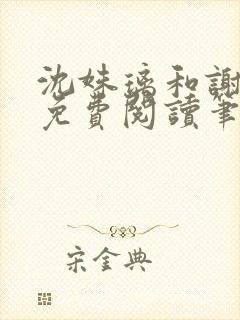 沈妹璃和謝
免費閱讀筆
宋金典